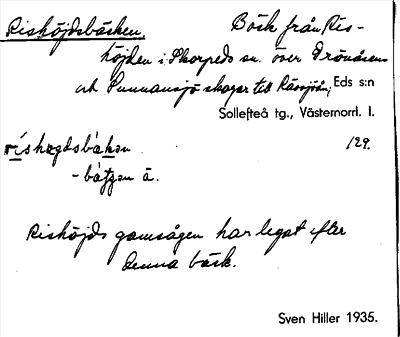 Rishöjdsbäcken. Bäck från Ris-
höjden i Skorpeds sn. över Drönåsens
och Sunnansjö skogar till Rässjön; Eds s:n
Sollefteå tg., Västernorrl. l.
129.
ríshøgdsbák̲en
- bátjen ä.
Rishöjds gamsågen har legat efter
denna bäck.
Sven Hiller 1935.